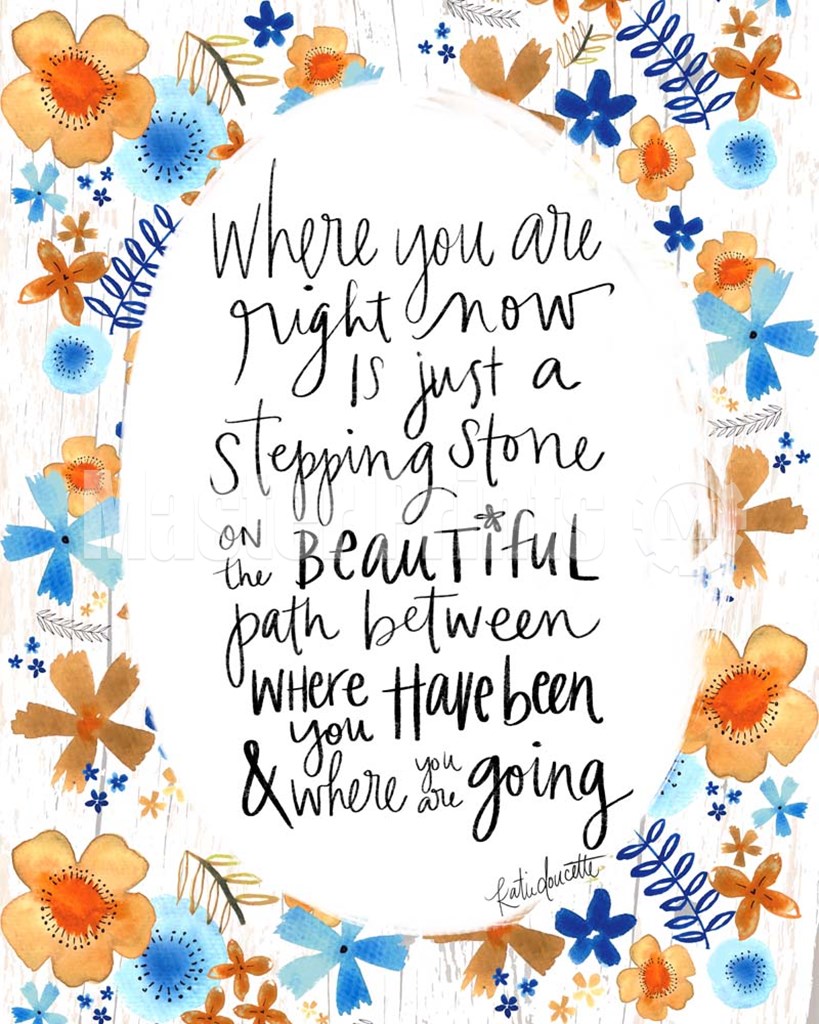 Where you are
right now
is just a
stepping stone
on the Beautiful
path between
where you Have been
& where you are going
Katie Doucette
MastedPrints